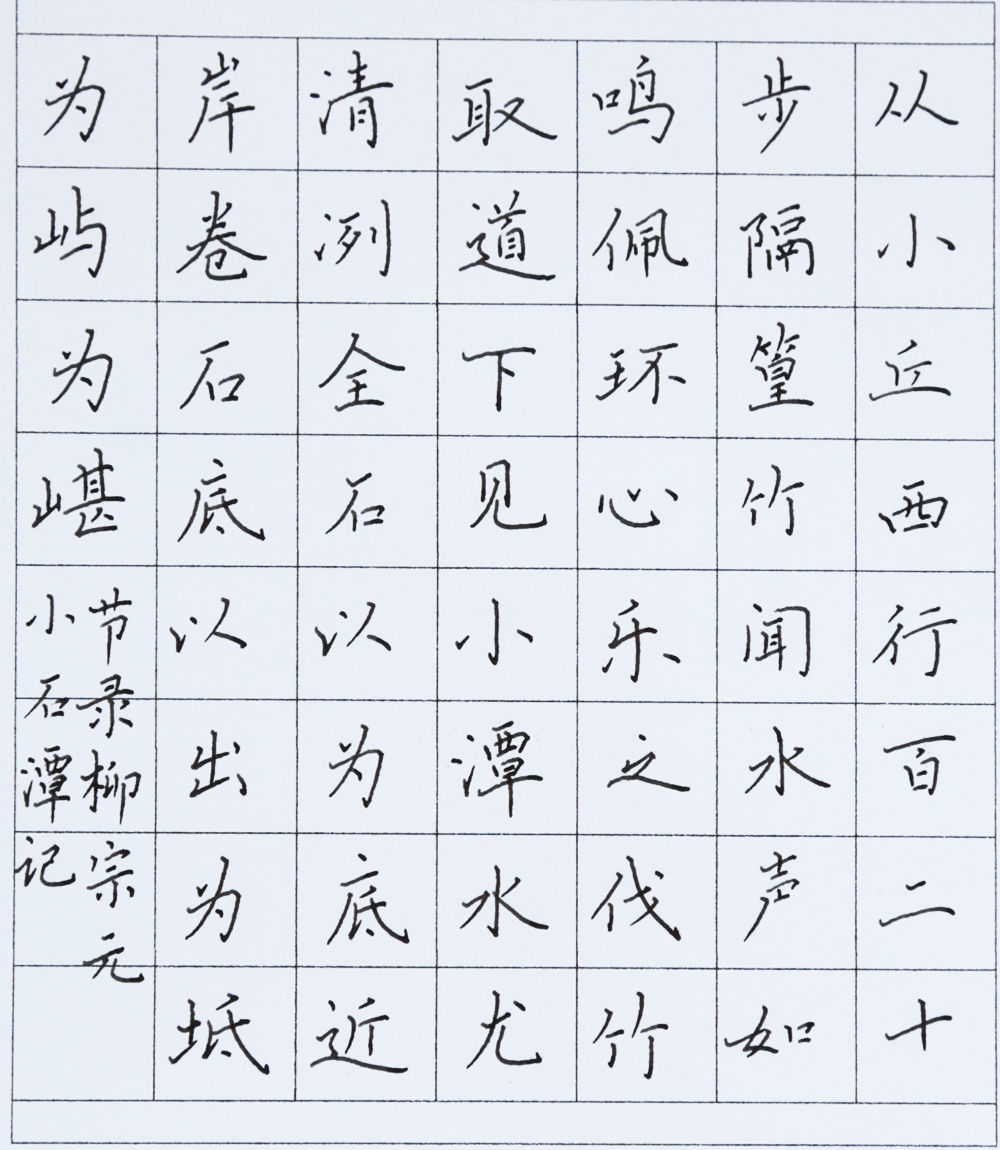 从小丘西行百二十
步隔篁竹闻水声如
鸣佩环心乐之伐竹
取道下见小潭水尤
清冽全石以为底近
岸卷石底以出为坻
为屿为嵁
节录柳宗元
小石潭记